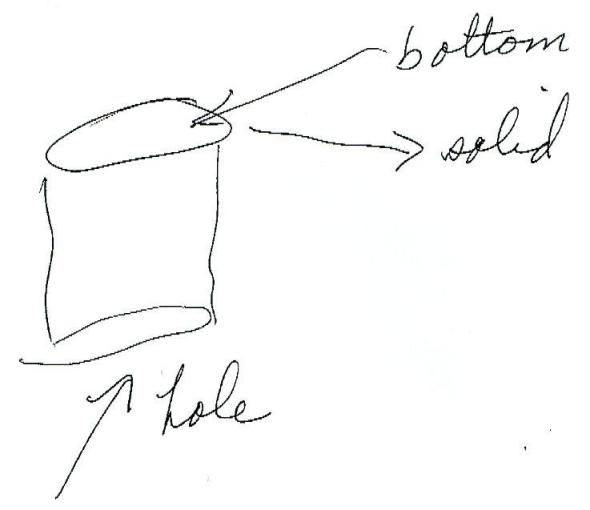 bottom
solid
hole